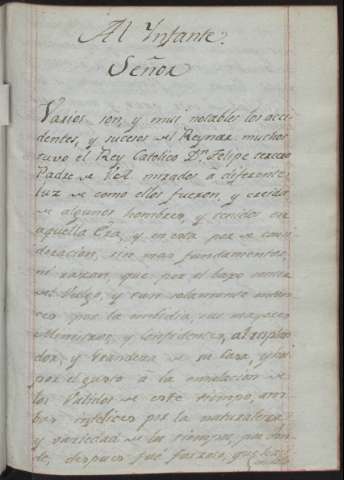 Al Ynfante.
Señor
Varios son, y mui notables los acci
dentes, y sucesos del Reynar muchos
tuvo el Rey Catolico Dn. Felipe tercero
Padre de V.A. mirados à diferente
luz de como ellos fueron, y creida
de algunos hombres, y tenidos en
aquella Era, y en esta por de consi
deracion, sin mas fundamentos,
ni razon, que por el baxo
del Vulgo, y tan solamente
por la embidia, sus mayores
Ministros, y Confidentes, al esplen
dor, y Grandeza de su Casa, y
por el gusto à la emulacion de
los Validos de este tiempo, am
bos infelices por la naturaleza
y variedad de los tiempos, por don
de, despues fué forzoso, que